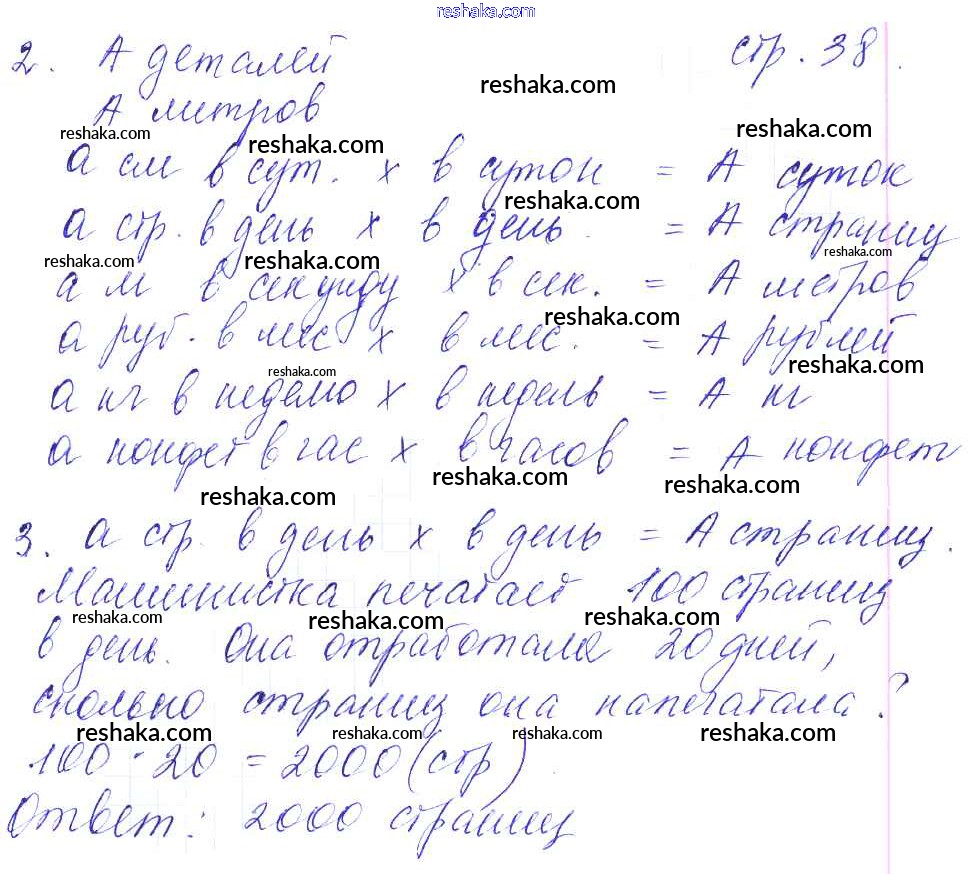 reshaka.com
2. А деталей стр. 38.
А митров
reshaka.com
reshaka.com reshaka.com reshaka.com
а см в сут. х в суток = А суток
reshaka.com
а стр. в день х в день = А страниц
reshaka.com reshaka.com reshaka.com
а м в секунду х в сек. = А метров
reshaka.com
а руб. в мес х в мес. = А рублей
reshaka.com reshaka.com
а кг в неделю х в недель = А кг
а конфет в час х в часов = А конфет
reshaka.com reshaka.com reshaka.com
3. а стр. в день х в день = А страниц.
Машинистка печатает 100 страниц
reshaka.com reshaka.com reshaka.com
в день. Она отработала 20 дней,
сколько страниц она напечатала?
reshaka.com reshaka.com reshaka.com reshaka.com
100 · 20 = 2000 (стр)
Ответ: 2000 страниц